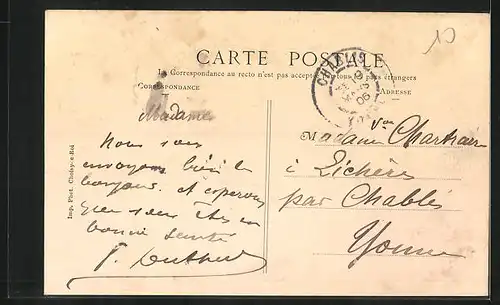 CARTE POSTALE
La Correspondance au recto n'est pas acceptée par tous les pays étrangers
CORRESPONDANCE
ADRESSE
Madame
Nous vous
envoyons
bonjour. et espérons
que vous êtes en
bonne santé
Madame Vve Chartrain
à Lichères
par Chablis
Yonne
Imp. Phot.
06